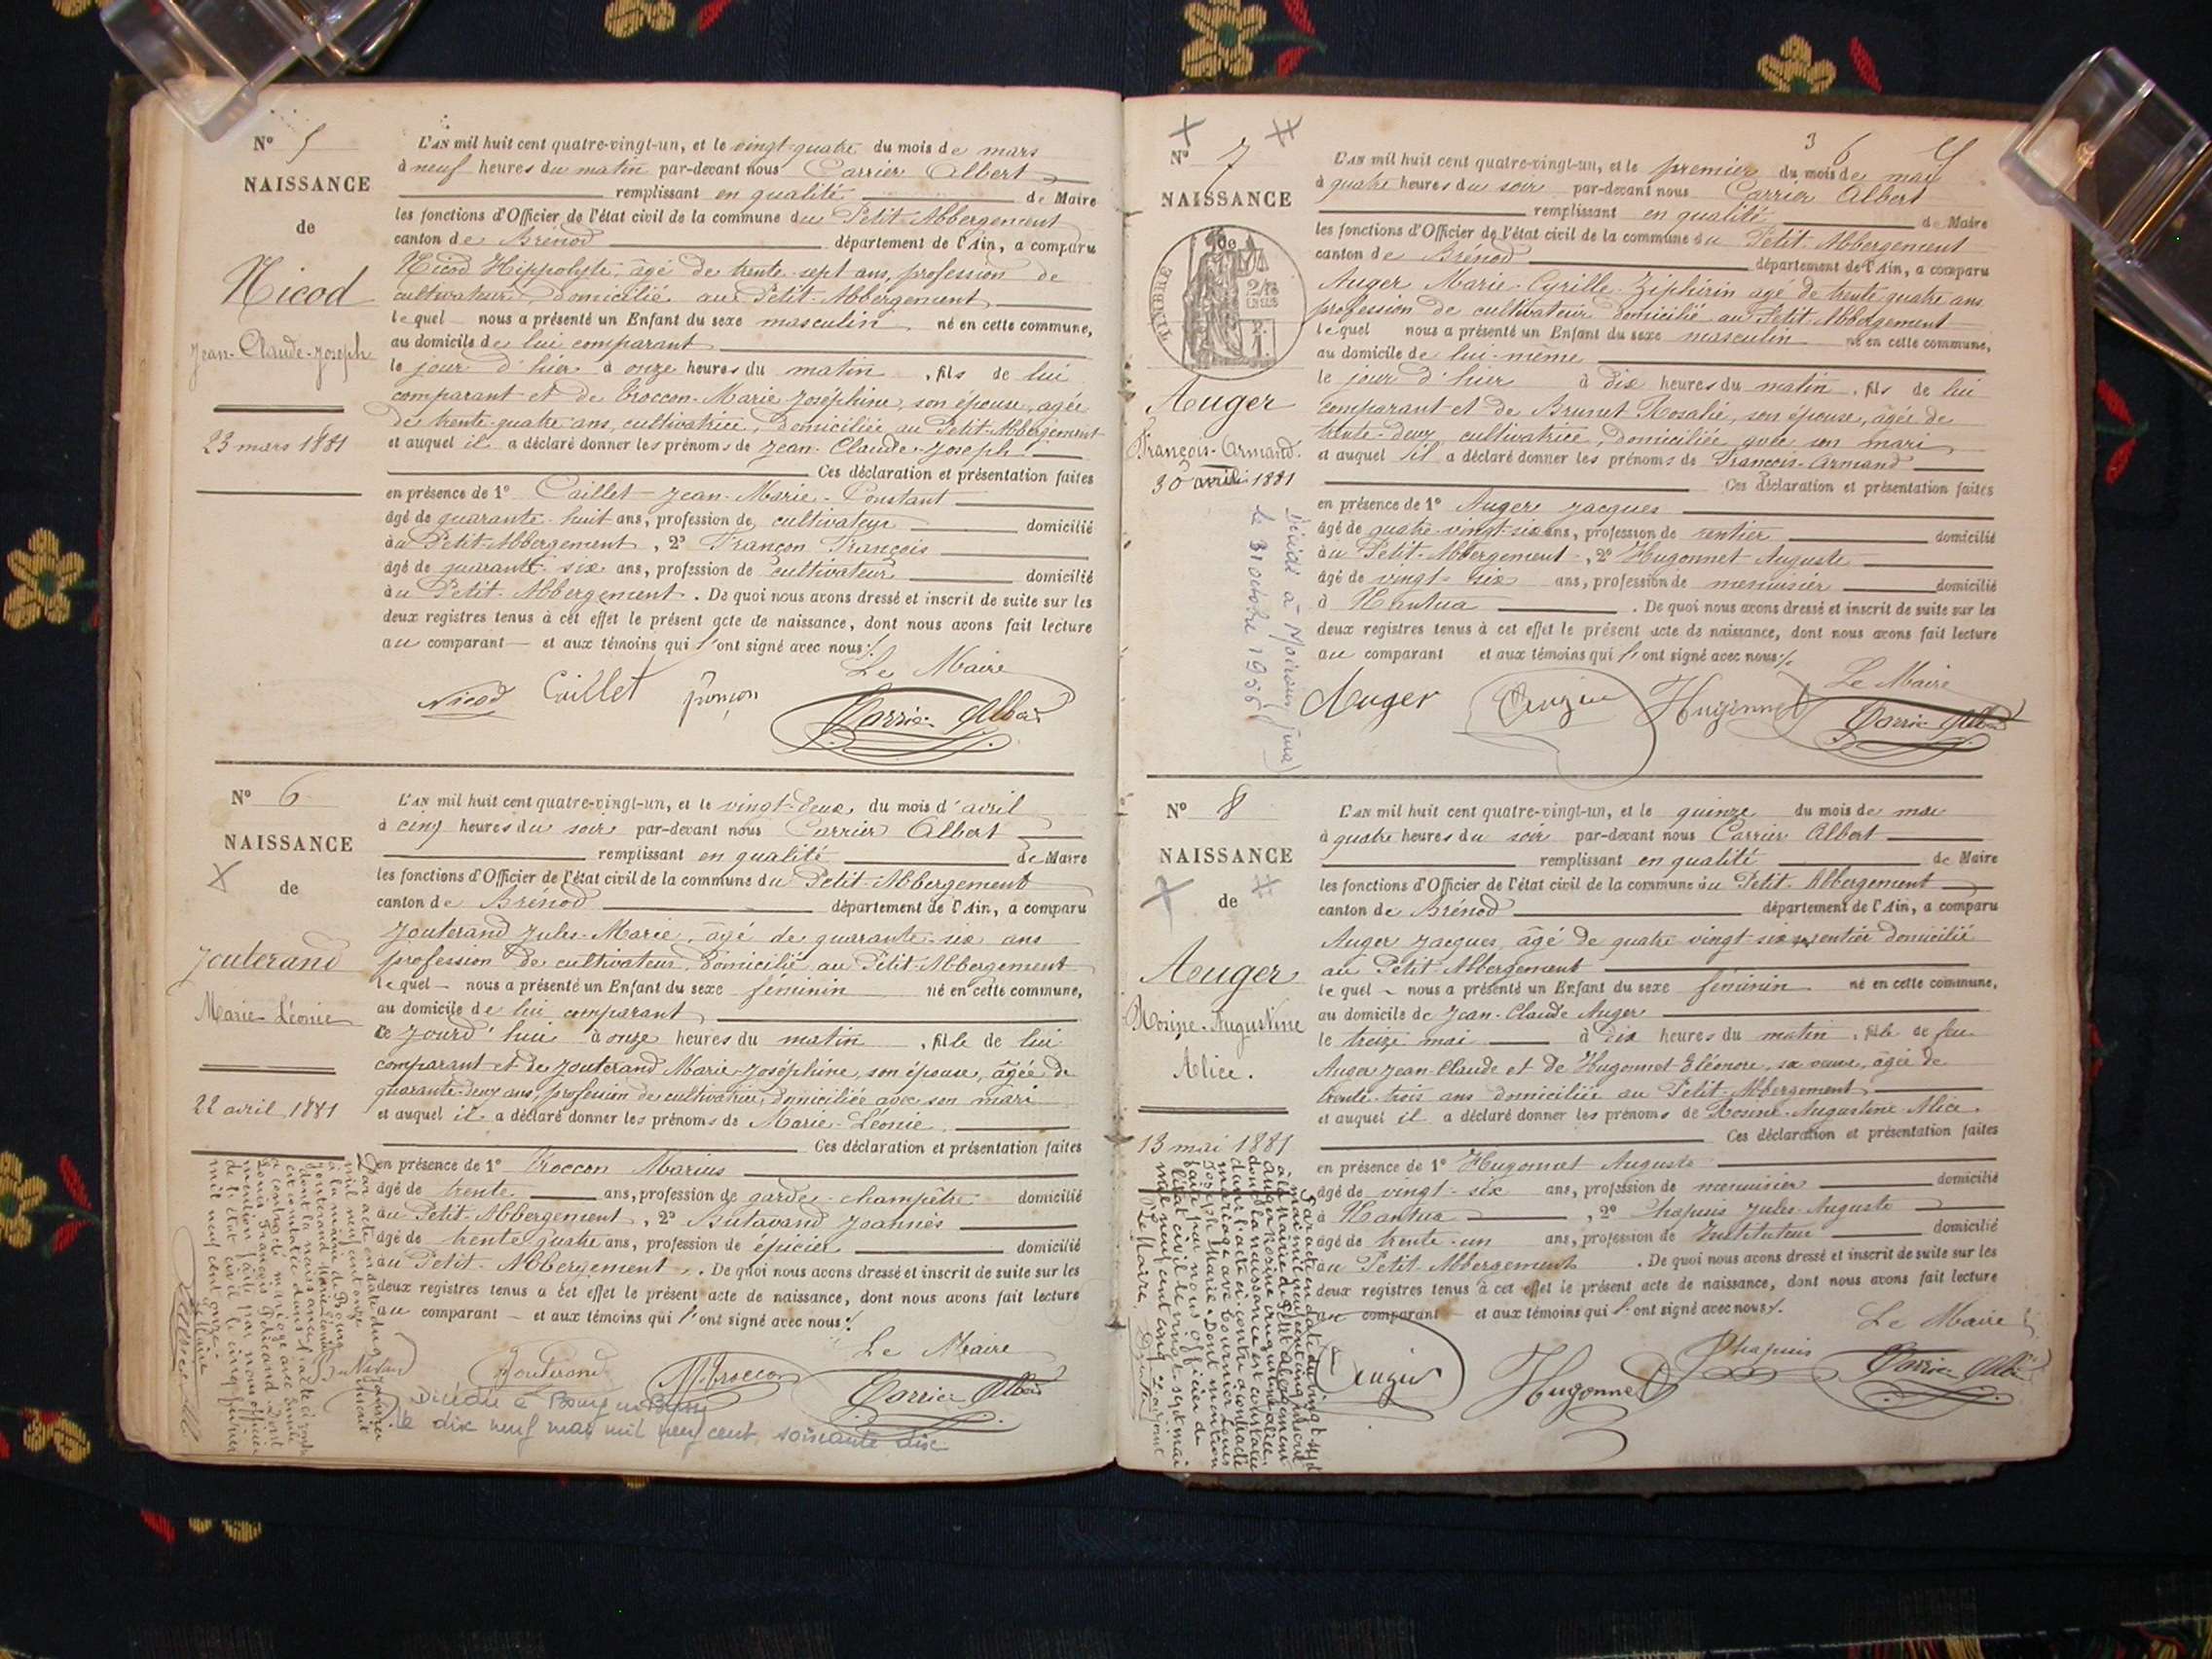 N° 5
NAISSANCE
de
Nicod
Jean-Claude-Joseph
23 mars 1881
L'AN mil huit cent quatre-vingt-un, et le vingt-quatre du mois de mars
à neuf heures du matin par-devant nous Carrier Albert
remplissant en qualité de Maire
les fonctions d'Officier de l'état civil de la commune du Petit-Abbergement
canton de Brénod département de l'Ain, a comparu
Nicod Hippolyte, âgé de trente-sept ans, profession de
cultivateur, domicilié au Petit-Abbergement
lequel nous a présenté un Enfant du sexe masculin né en cette commune,
au domicile de lui comparant
le jour d'hier à onze heures du matin, fils de lui
comparant et de Troccon Marie Joséphine, son épouse, agée
de trente-quatre ans, cultivatrice, domiciliée au Petit-Abbergement
et auquel il a déclaré donner les prénoms de Jean-Claude-Joseph
Ces déclaration et présentation faites
en présence de 1° Caillet Jean-Marie-Constant
âgé de quarante-huit ans, profession de cultivateur domicilié
au Petit-Abbergement, 2° Françon François
âgé de quarante-six ans, profession de cultivateur domicilié
au Petit-Abbergement. De quoi nous avons dressé et inscrit de suite sur les
deux registres tenus à cet effet le présent acte de naissance, dont nous avons fait lecture
au comparant et aux témoins qui l'ont signé avec nous ./.
Le Maire
Nicod Caillet françon Carrier Albert
N° 6
NAISSANCE
de
Jouterand
Marie-Léonie
22 avril 1881
L'AN mil huit cent quatre-vingt-un, et le vingt-deux du mois d'avril
à cinq heures du soir par-devant nous Carrier Albert
remplissant en qualité de Maire
les fonctions d'Officier de l'état civil de la commune du Petit-Abbergement
canton de Brénod département de l'Ain, a comparu
Jouterand Jules-Marie, âgé de quarante-six ans
profession de cultivateur, domicilié au Petit-Abbergement
lequel nous a présenté un Enfant du sexe féminin né en cette commune,
au domicile de lui comparant
ce jourd'hui à onze heures du matin, fille de lui
comparant et de Jouterand Marie-Joséphine, son épouse, âgée de
quarante-deux ans, profession de cultivatrice, domiciliée avec son mari
et auquel il a déclaré donner les prénoms de Marie-Léonie
Ces déclaration et présentation faites
en présence de 1° Troccon Marius
âgé de trente ans, profession de garde-champêtre domicilié
au Petit-Abbergement, 2° Butavand Joannès
âgé de trente quatre ans, profession de épicier domicilié
au Petit-Abbergement. De quoi nous avons dressé et inscrit de suite sur les
deux registres tenus à cet effet le présent acte de naissance, dont nous avons fait lecture
au comparant et aux témoins qui l'ont signé avec nous ./.
Le Maire
Jouterand M. Troccon Carrier Albert
Décédée à Bourg en Bresse
le dix neuf mai mil neuf cent soixante dix
Par acte en date du janvier
mil neuf cent onze inscrit
à la mairie de Bourg
Jouterand Marie Léonie
dont la naissance
est constatée dans l'acte ci-contre
a contracté mariage avec
François Dont
mention faite par nous officier
de l'état civil le cinq février
mil neuf cent onze
Le Maire
N° 7
NAISSANCE
de
TIMBRE
Auger
François-Armand
30 avril 1881
Décédé à Moirans (Jura)
le 31 octobre 1956
3 6
L'AN mil huit cent quatre-vingt-un, et le premier du mois de mai
à quatre heures du soir par-devant nous Carrier Albert
remplissant en qualité de Maire
les fonctions d'Officier de l'état civil de la commune du Petit-Abbergement
canton de Brénod département de l'Ain, a comparu
Auger Marie-Cyrille-Ziphirin agé de trente quatre ans
profession de cultivateur domicilié au Petit-Abbergement
lequel nous a présenté un Enfant du sexe masculin né en cette commune,
au domicile de lui-même
le jour d'hier à dix heures du matin, fils de lui
comparant et de Brunet Rosalie, son épouse, âgée de
trente-deux, cultivatrice, domiciliée avec son mari
et auquel il a déclaré donner les prénoms de François-Armand
Ces déclaration et présentation faites
en présence de 1° Auger Jacques
âgé de quatre-vingt-six ans, profession de rentier domicilié
au Petit-Abbergement, 2° Hugonnet Auguste
âgé de vingt-six ans, profession de menuisier domicilié
à Nantua. De quoi nous avons dressé et inscrit de suite sur les
deux registres tenus à cet effet le présent acte de naissance, dont nous avons fait lecture
au comparant et aux témoins qui l'ont signé avec nous ./.
Le Maire
Auger Augier Hugonnet Carrier Albert
N° 8
NAISSANCE
de
Auger
Rosine-Augustine
Alice.
13 mai 1881
L'AN mil huit cent quatre-vingt-un, et le quinze du mois de mai
à quatre heures du soir par-devant nous Carrier Albert
remplissant en qualité de Maire
les fonctions d'Officier de l'état civil de la commune du Petit-Abbergement
canton de Brénod département de l'Ain, a comparu
Auger Jacques, âgé de quatre vingt-six, rentier domicilié
au Petit-Abbergement
lequel nous a présenté un Enfant du sexe féminin né en cette commune,
au domicile de Jean-Claude Auger
le treize mai à dix heures du matin, fille de feu
Auger Jean-Claude et de Hugonnet Eléonore, sa veuve, âgée de
trente-trois ans domiciliée au Petit-Abbergement
et auquel il a déclaré donner les prénoms de Rosine-Augustine-Alice.
Ces déclaration et présentation faites
en présence de 1° Hugonnet Auguste
âgé de vingt-six ans, profession de menuisier domicilié
à Nantua, 2° Chapuis Jules-Auguste
âgé de trente-un ans, profession de Instituteur domicilié
au Petit-Abbergement. De quoi nous avons dressé et inscrit de suite sur les
deux registres tenus à cet effet le présent acte de naissance, dont nous avons fait lecture
au comparant et aux témoins qui l'ont signé avec nous ./.
Le Maire
Augier Hugonnet Chapuis Carrier Albert
Par acte en date du vingt sept
mai mil neuf cent cinq inscrit
à la mairie du Petit Abbergement
Auger Rosine Augustine Alice,
dont la naissance est constatée
dans l'acte ci-contre a contracté
mariage avec Tournier Louis
Joseph Marie. Dont mention
faite par nous officier de
l'état civil le vingt-sept mai
mil neuf cent cinq
Le Maire